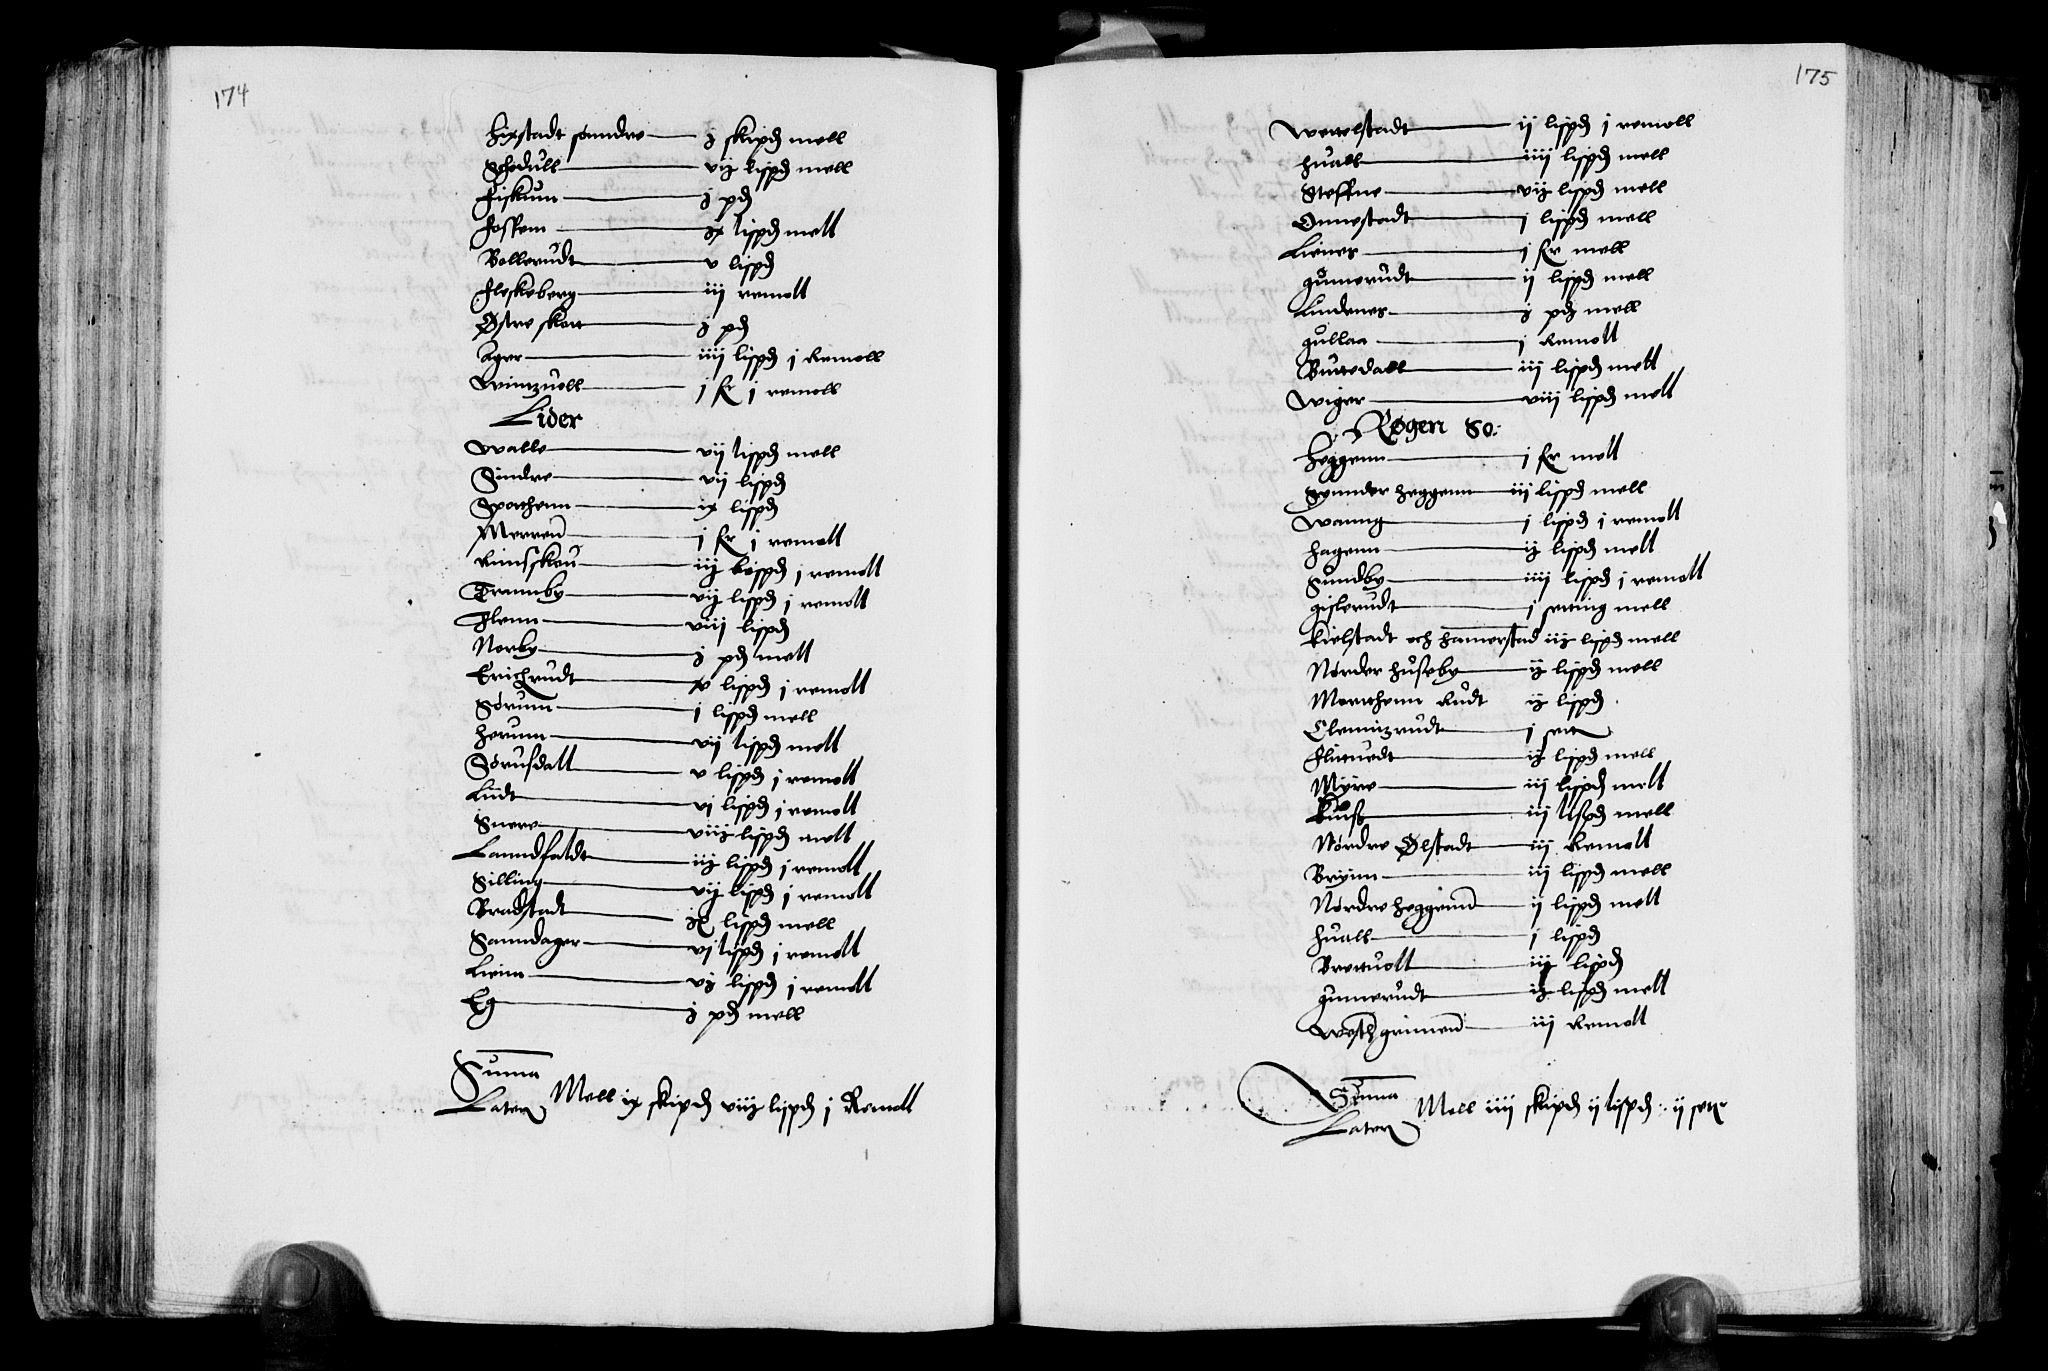 174
Hixstadt sønndre — ɉ skipd mell
Schedull — vijɉ lispd mell
Fiskum — ɉ pd
Foskem — ix lispd mell
Bollerudt — v lispd
Fleskeberg — iij remoll
Østre skou — ɉ pd
Ager — iiij lispd j Remoll
Wintzuoll — j fr j remoll
Lider
Walle — vij lispd mell
Sindre — vij lispd
Sporthenn — ix lispd
Merren — j fr j remoll
Rimsskou — iij lispd j remoll
Trannby — vij lispd j remoll
Flenn — viij lispd
Norby — ɉ pd mell
Erichrudt — v lispd j remoll
Sørum — j lispd mell
Horum — vij lispd mell
Sørusdall — v lispd j remoll
Lijdt — vj lispd j remoll
Snere — viijɉ lispd mell
Lanndfaldt — iijɉ lispd j remoll
Silling — vijɉ lispd j remoll
Bradstadt — ix lispd mell
Sanndager — vj lispd j remoll
Lieim — vjɉ lispd j remoll
Eg — ɉ pd mell
Suma
Later Mell ix skipd viijɉ lispd j Remoll
175
Wettelstadt — ij lispd j remoll
Huall — iiij lispd mell
Steffne — vijɉ lispd mell
Onnestadt — j lispd mell
Lienes — j fr mell
Gunnerudt — ij lispd mell
Lindenes — ɉ pd mell
Gullaa — j Remoll
Buttedall — iij lispd mell
Wiger — viij lispd mell
Røgen So:
Heggenn — j fr mell
Synnder Heggenn — iij lispd mell
Wanng — j lispd j remoll
Hagenn — ijɉ lispd mell
Sundby — iiij lispd j remoll
Gislerudt — j setting mell
Kielstadt och Hamerstad iijɉ lispd mell
Nørder Huseby — ijɉ lispd mell
Mortthenn Rudt ijɉ lispd
Clemitzrudt — j sett
Flittuedt — ijɉ lispd mell
Myre — iij lispd mell
— iij lispd mell
Nørdre Ølstadt — iij Remoll
Bryinn — iij lispd mell
Nørdre Heggind — ij lispd mell
Huall — j lispd
Brettuoll — iijɉ lispd
Gunnerudt — ijɉ lispd mell
Westh grinnen — iij Remoll
Suma
Later Mell iiij skipd ij lispd : ij sett